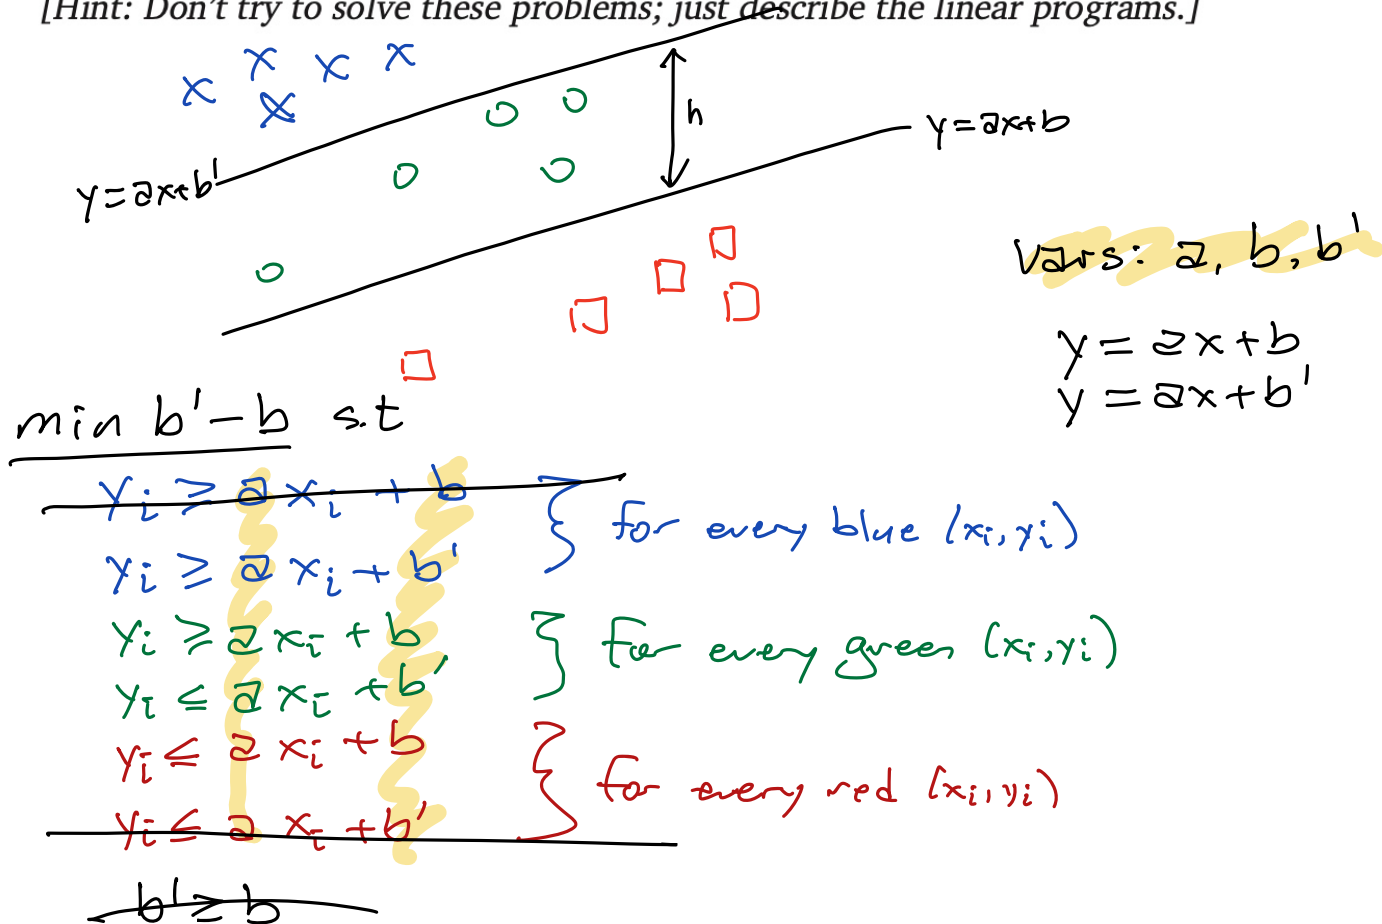 [Hint: Don't try to solve these problems; just describe the linear programs.]
h
y=ax+b
y=ax+b'
vars: a, b, b'
y = ax+b
y = ax+b'
min b'-b s.t
yi ≥ a xi + b
yi ≥ a xi + b'
for every blue (xi,yi)
yi ≥ a xi + b
yi ≤ a xi + b'
for every green (xi,yi)
yi ≤ a xi + b
yi ≤ a xi + b'
for every red (xi,yi)
b' ≥ b